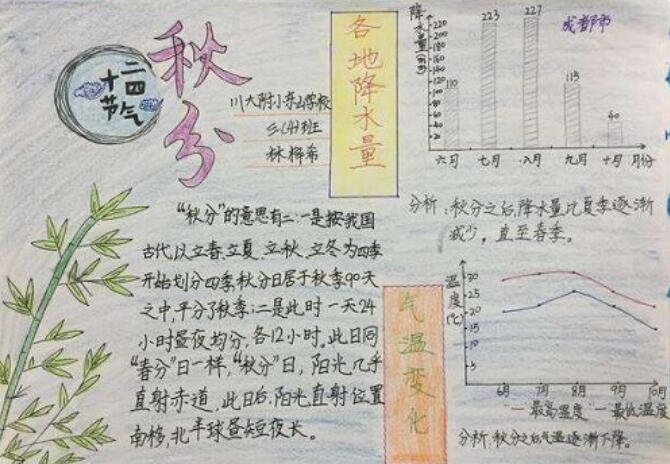 二四
十
节气
秋分
川大附小
学校
林
各地降水量
降水量(mm)
成都市
220
200
180
160
140
120
110
223
227
115
40
六月 七月 八月 九月 十月 月份
分析:秋分之后,降水量比夏季逐渐
减少,直至春季。
“秋分”的意思有二:一是按我国
古代以立春、立夏、立秋、立冬为四季
开始划分四季,秋分日居于秋季90天
之中,平分了秋季;二是此时一天24
小时昼夜均分,各12小时,此日同
“春分”日一样,“秋分”日,阳光几乎
直射赤道,此日后,阳光直射位置
南移,北半球昼短夜长。
气温变化
温度(℃)
30
25
20
15
5
6月 7月 8月 9月 10月
一最高温度 一最低温度
分析:秋分之后气温逐渐下降。